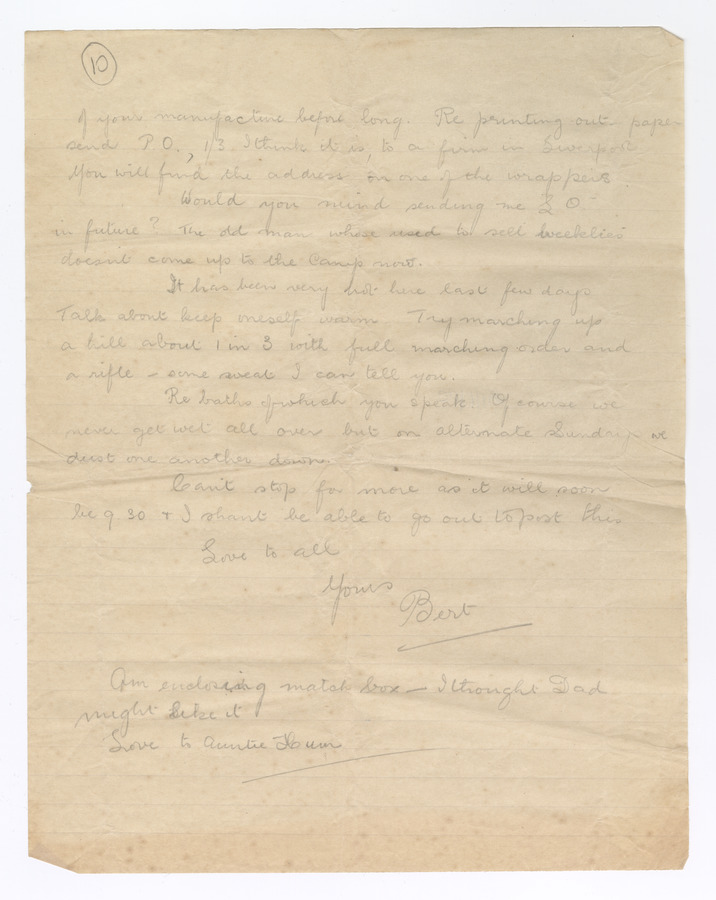 10
of your manufacture before long. Re printing out paper
send P.O., 1/3 I think it is, to a firm in Liverpool
You will find the address on one of the wrappers.
Would you mind sending me
in future? The old man whose used to sell weeklies
doesnt come up to the Camp now.
It has been very hot here last few days
Talk about keep oneself warm Try marching up
a hill about 1 in 3 with full marching order and
a rifle - some sweat I can tell you.
Re baths of which you speak. Of course we
never get wet all over but on alternate Sundays we
dust one another down.
Can't stop for more as it will soon
be 9.30 + I shant be able to go out to post this
Love to all
Yours
Bert
Am enclosing match box - I thought Dad
might like it
Love to Auntie